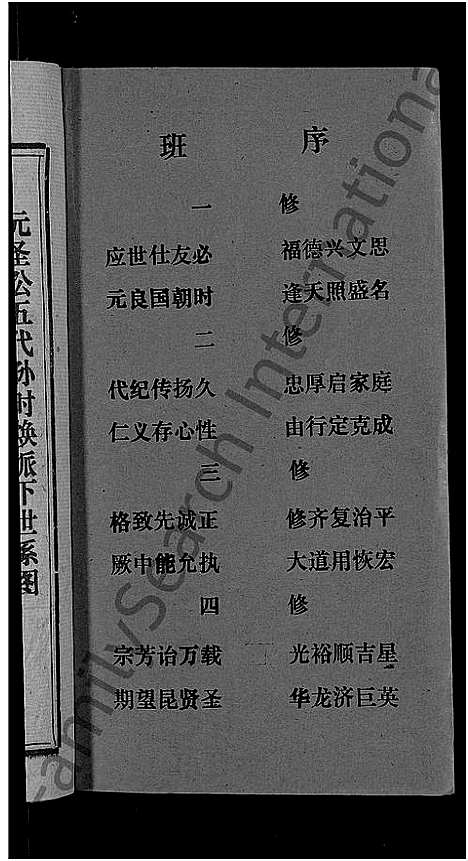 班序
一修
应世仕友必 福德兴文思
元良国朝时 逢天照盛名
二修
代纪传扬久 忠厚启家庭
仁义存心性 由行定克成
三修
格致先诚正 修齐复治平
厥中能允执 大道用恢宏
四修
宗芳诒万载 光裕顺吉星
期望昆贤圣 华龙济巨英
元圣公五代孙时焕派下世系图
FamilySearch International